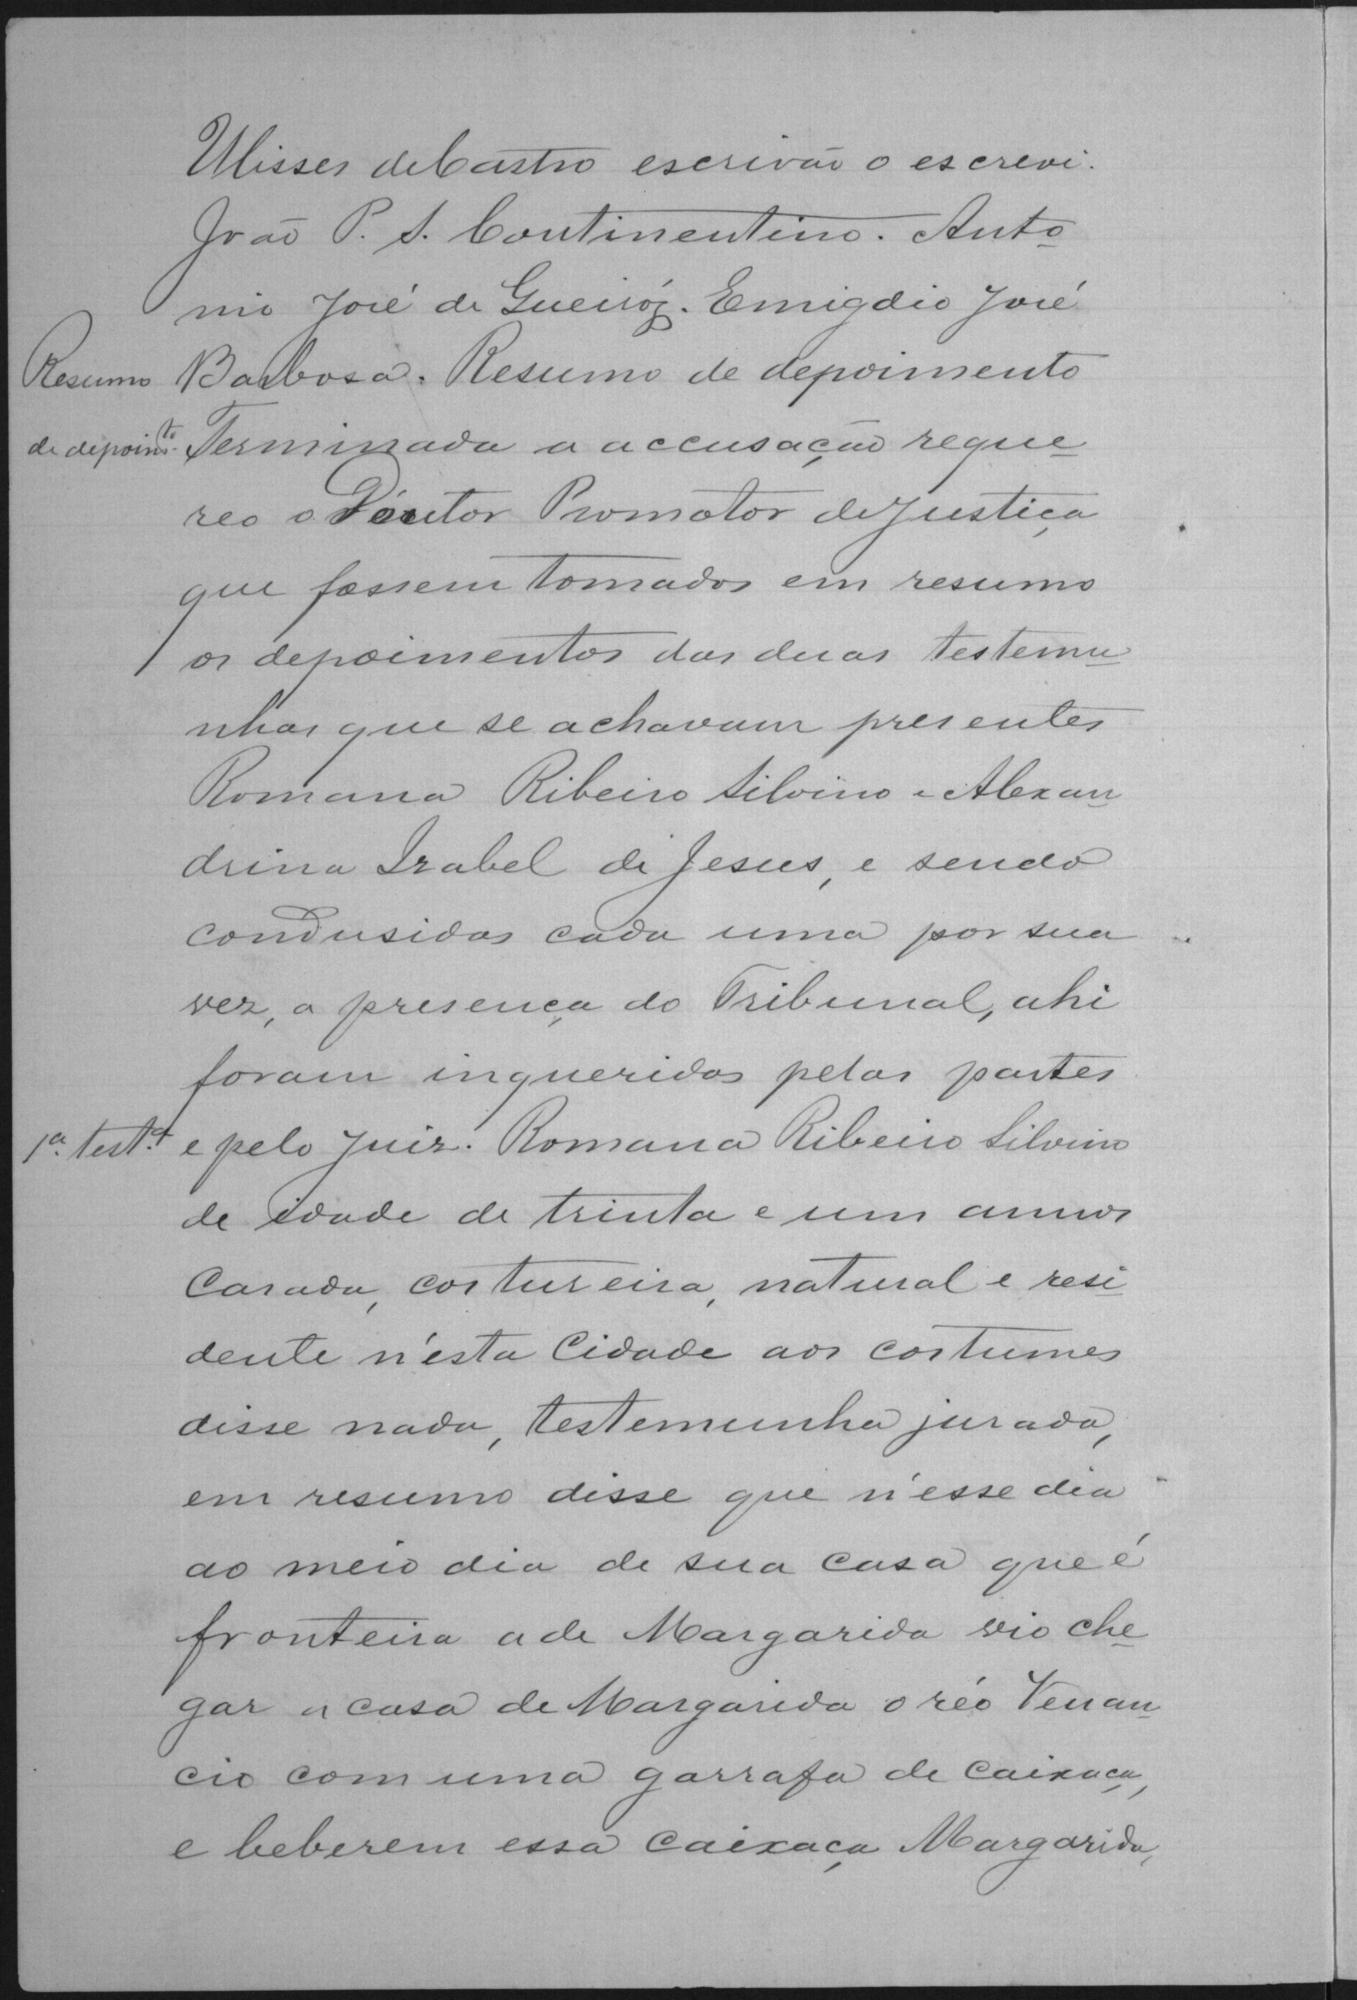 Ulisses de Castro escrivão o escrevi.
João P. S. Continentino. Anto
nio José de Gueiróz. Emigdio José
Resumo Barbosa. Resumo de depoimento
de depoim.to Terminada a accusação reque
reo o Doutor Promotor de Justiça
que fossem tomados em resumo
os depoimentos das duas testemu
nhas que se achavam presentes
Romana Ribeiro Silvino e Alexan
drina Izabel de Jesus, e sendo
condusidas cada uma por sua
vez, a presença do Tribunal, ahi
foram inqueridas pelas partes
1ª. test.ª e pelo Juiz. Romana Ribeiro Silvino
de idade de trinta e um annos
Casada, costureira, natural e resi
dente n'esta Cidade aos costumes
disse nada, testemunha jurada,
em resumo disse que n'esse dia
ao meio dia de sua casa que é
fronteira a de Margarida vio che
gar a casa de Margarida o réo Venan
cio com uma garrafa de Caixaça,
e beberem essa Caixaça Margarida,